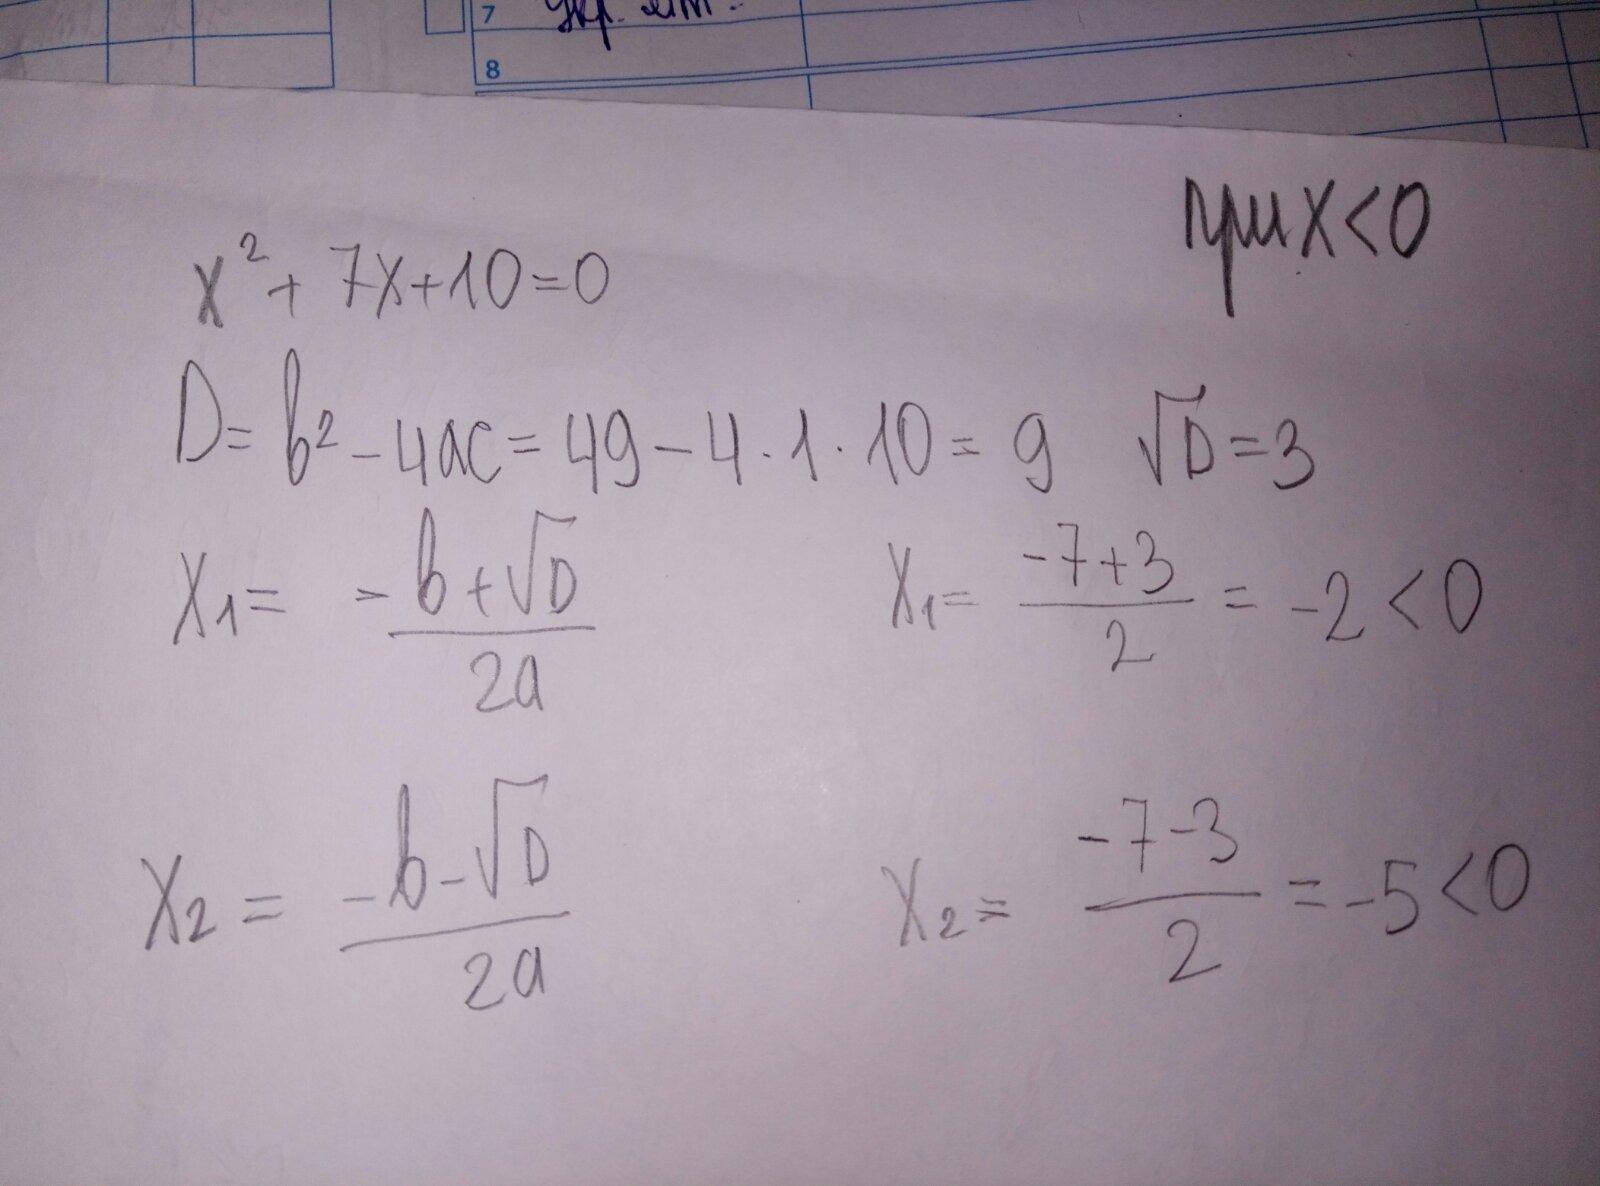 7 Укр. літ.
8
при x<0
x² + 7x+10=0
D= b² - 4ac = 49 - 4 · 1 · 10 = 9 √D = 3
x₁ = -b+√D/2a x₁ = -7+3/2 = -2 < 0
x₂ = -b-√D/2a x₂ = -7-3/2 = -5 < 0